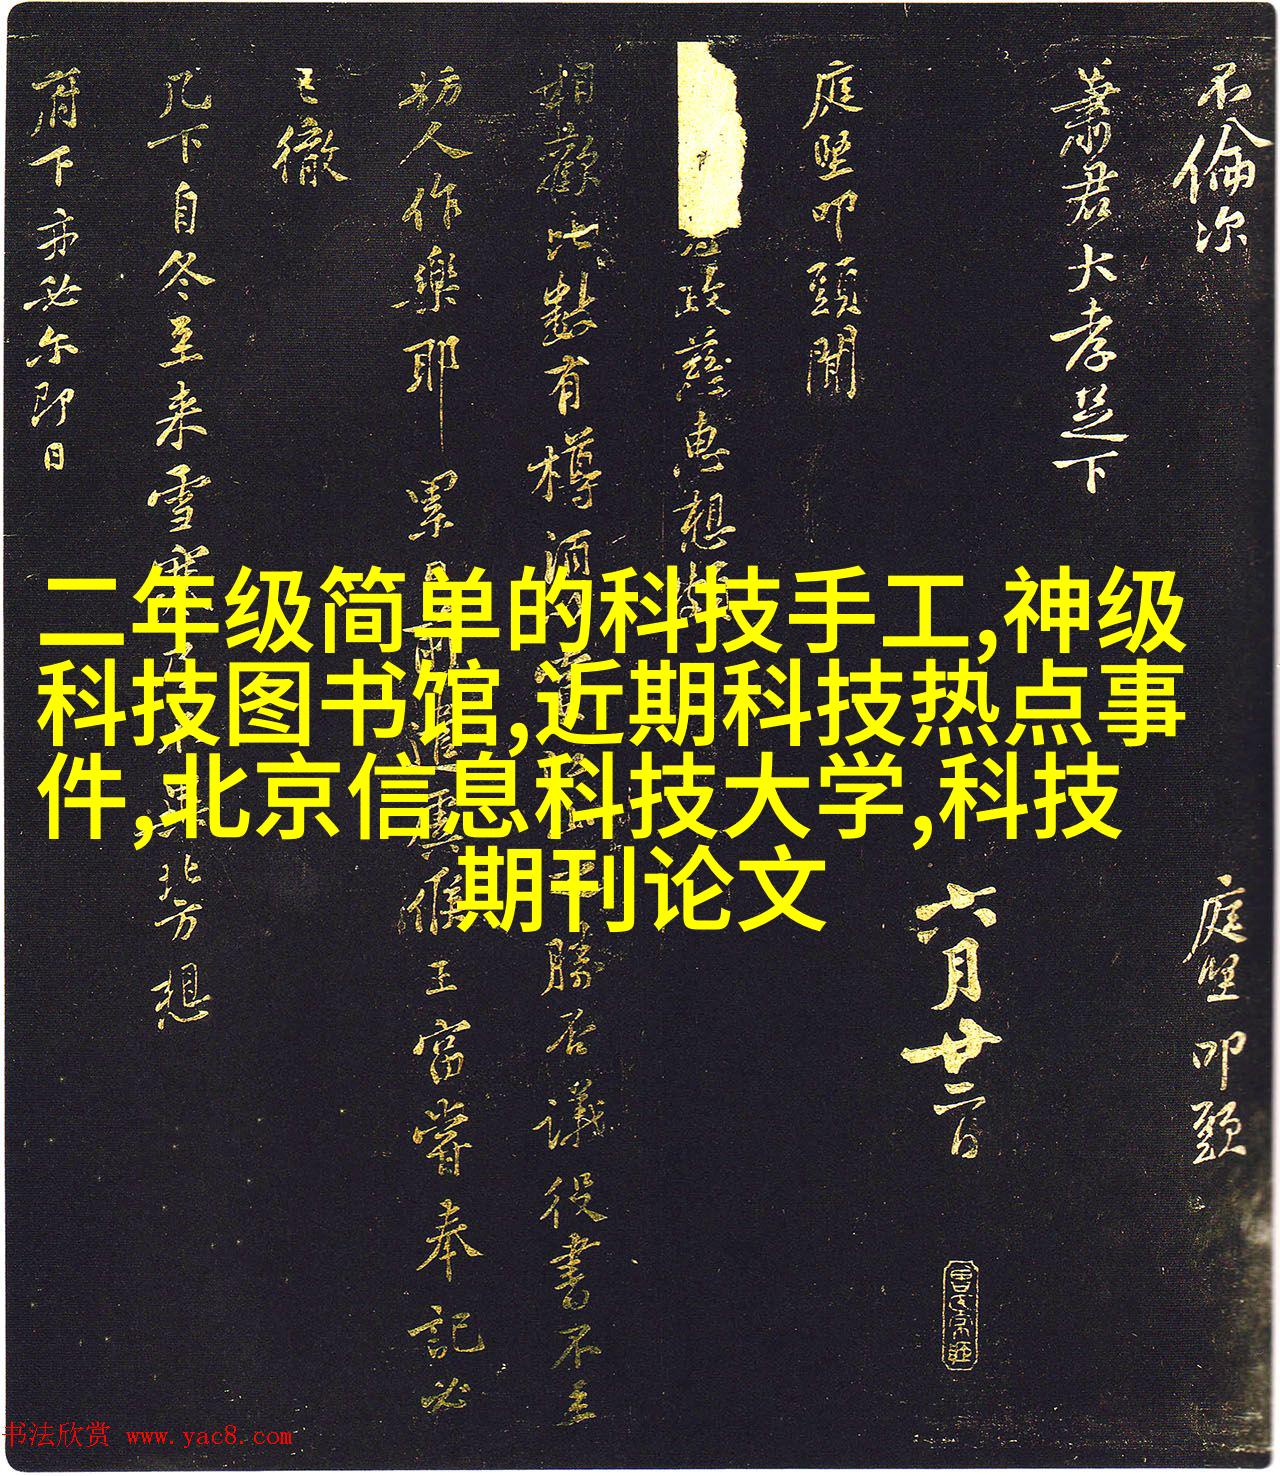 二年级简单的科技手工,神级
科技图书馆,近期科技热点事
件,北京信息科技大学,科技
期刊论文
不倫次
庭堅叩頭
蕭君大孝足下
六月廿二日
庭堅叩頭聞
政慈惠想
相歡 有樽酒 勝否議役書不至
人作樂耶 累 王富嘗奉記必
已徹
几下自冬至来雪寒 北方想
府下 即日
书法欣赏 www.yac8.com